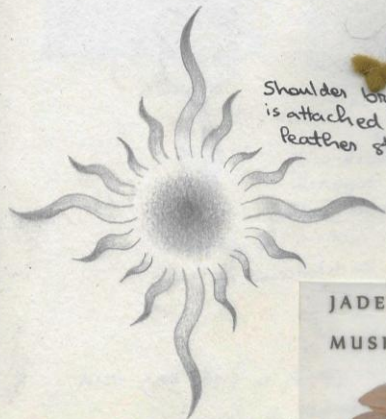 Shoulder
is attached
feather
JADE
MUSE